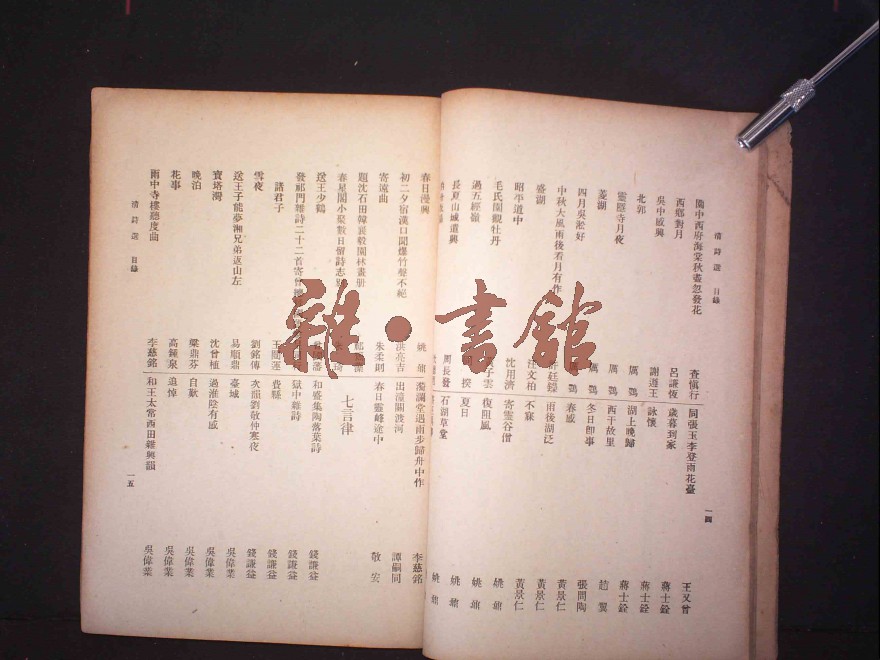 清詩選 目錄
閣中西府海棠秋盡忽發花 查慎行 同張玉李登雨花臺 王又曾
西鄉對月 呂謙恆 歲暮到家 蔣士銓
吳中感興 謝遵王 詠懷 蔣士銓
北郭 厲鶚 湖上晚歸 蔣士銓
靈隱寺月夜 厲鶚 西干故里 趙翼
菱湖 厲鶚 冬日即事 張問陶
四月吳淞好 厲鶚 春感 黃景仁
中秋大風雨後看月有作 許廷鑅 雨後湖泛 黃景仁
盛湖 汪文柏 不寐 黃景仁
昭平道中 沈用濟 寄雲谷僧 姚鼐
毛氏園觀牡丹 子雲 復阻風 姚鼐
過五經嶺 揆 夏日 姚鼐
長夏山城遣興 周長發 石湖草堂 姚鼐
一四
春日漫興 姚鼐 濁瀾堂遇雨步歸舟中作 李慈銘
初二夕宿漢口聞爆竹聲不絕 洪亮吉 出潼關渡河 譚嗣同
寄遠曲 朱柔則 春日靈峰途中 敬安
題沈石田韓襄毅園林畫册
七言律
春星閣小聚數日留詩志別 琦
送王少鶴 藩 和盛集陶落葉詩 錢謙益
發祁門雜詩二十二首寄曾 獄中雜詩 錢謙益
諸君子 王闓運 費縣 錢謙益
雪夜 劉銘傳 次韻劉敬仲寒夜 錢謙益
送王子龍夢湘兄弟返山左 易順鼎 臺城 吳偉業
寶塔灣 沈曾植 過淮陰有感 吳偉業
晚泊 梁鼎芬 自歎 吳偉業
花事 高鍾泉 追悼 吳偉業
雨中寺樓聽度曲 李慈銘 和王太常西田雜興韻 吳偉業
清詩選 目錄
一五
雜·書館